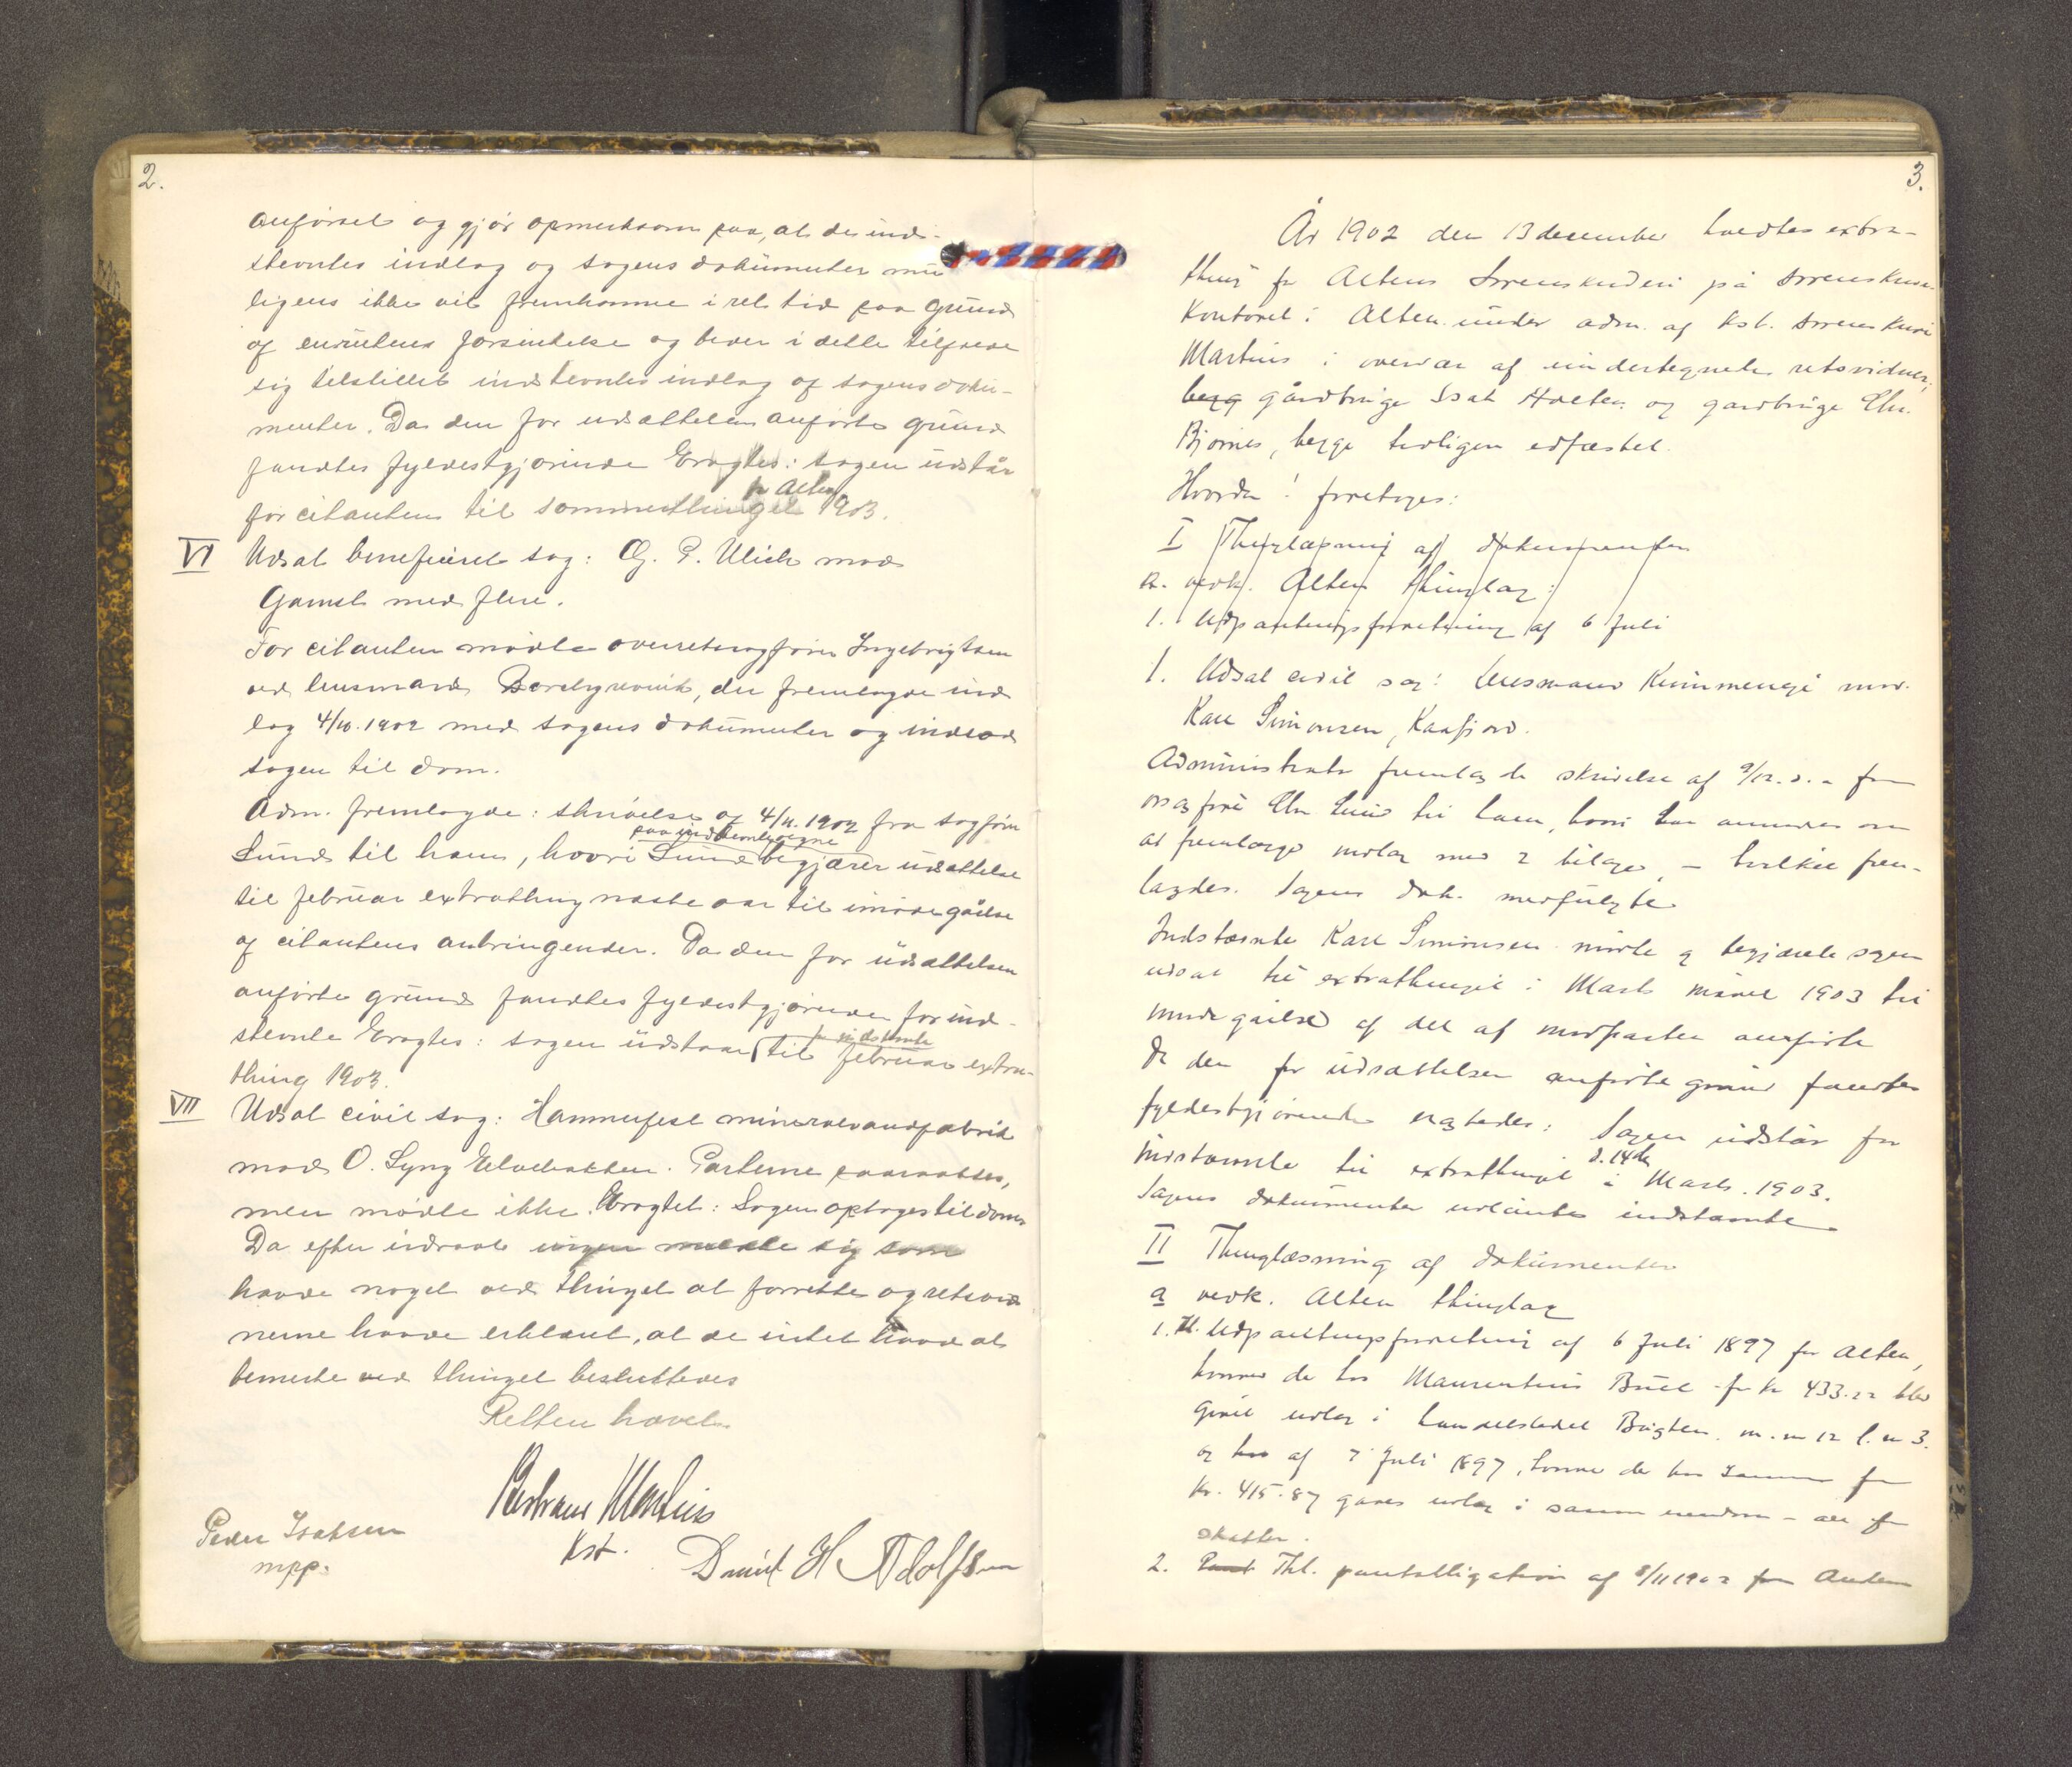 2.
anførsel og gjør opmerksom paa, at de ind-
stevntes indlæg og sagens dokumenter mu
ligens ikke vil fremkomme i ret tid paa grund
af enrutens forsinkelse og beder i dette tilfælde
sig tilstillet indstevntes indlæg og sagens doku-
menter. Da den for udsættelsen anførte grund
fandtes fyldestgjørende Eragtes: sagen udstår
for citanten til sommerthinget for Alten 1903.
VI Udsat beneficeret sag: O. P. Ulich mod
Gamst med flere.
For citanten mødte overretssagfører Ingebrigtsen
ved lensmand Borchgrevink, der fremlagde ind
læg 4/10.1902 med sagens dokumenter og indlod
sagen til dom.
Adm. fremlagde: skrivelse af 4/11.1902 fra sagfører
Lund til ham, hvori Lund paa indstevntes vegne begjærer udsættelse
til februar extrathing næste aar til imødegåelse
af citantens anbringender. Da den for udsættelsen
anførte grund fandtes fyldestgjørende for ind-
stevnte Eragtes: sagen udstaar for indstevnte til februar extra-
thing 1903.
VII Udsat civil sag: Hammerfest mineralvandfabrik
mod O. Lyng Elvebakken. Parterne paaraabtes,
men mødte ikke. Eragtet: Sagen optages til doms
Da efter udraab ingen meldte sig som
havde noget ved thinget at forrette og retsvid
nerne havde erklært, at de intet havde at
bemerke ved thinget besluttedes
Retten hævet.
Bertrand Martins
Kst.
Peder Isaksen
mpp.
David H Adolfsen
3.
År 1902 den 13 december holdtes extra-
thing for Altens Sorenskriveri på sorenskriver-
kontoret i Alten under adm. af kst. sorenskriver
Martins i overvær af undertegnede retsvidner,
begg gårdbruger Isak Holten og gardbruger Chr.
Bjørnes, begge tidligere edfæstet.
Hvorda! foretoges:
I Thinglæsning af dokumenter
a. vedk. Alten thinglag:
1. Udpantningsforretning af 6 Juli
1. Udsat civil sag: Lensmand Kimmengi mod.
Karl Simonsen, Kaafjord.
Administrator fremlagde skrivelse af 9/12. d.a fra
orsagfører Chr Lund til ham, hvori han anmodes om
at fremlægge indlæg med 2 bilage, - hvilket frem-
lagdes. Sagens dok. medfulgte
Indstævnte Karl Simonsen mødte og begjærte sagen
udsat til extrathinget i Marts måned 1903 til
imødegåelse af det af modparten anførte
Da den for udsættelsen anførte grund fandtes
fyldestgjørende eragtedes: Sagen udstår for
indstævnte til extrathinget d. 14de i Marts. 1903.
Sagens dokumenter udlåntes indstævnte
II Thinglæsning af dokumenter
a vedk. Alten thinglag
1. Udpantningsforretning af 6 Juli 1897 for Alten,
hvorved der hos Maurentius Buck for kr 433.22 blev
givet udlæg i handelsstedet Bugten m. no 12 l. no 3.
og af 7 Juli 1897, hvorved der hos samme for
kr. 415.87 gaves udlæg i samme eiendom - alt for
skatter.
2. Thl. pantobligation af 8/11 1902 fra Anders